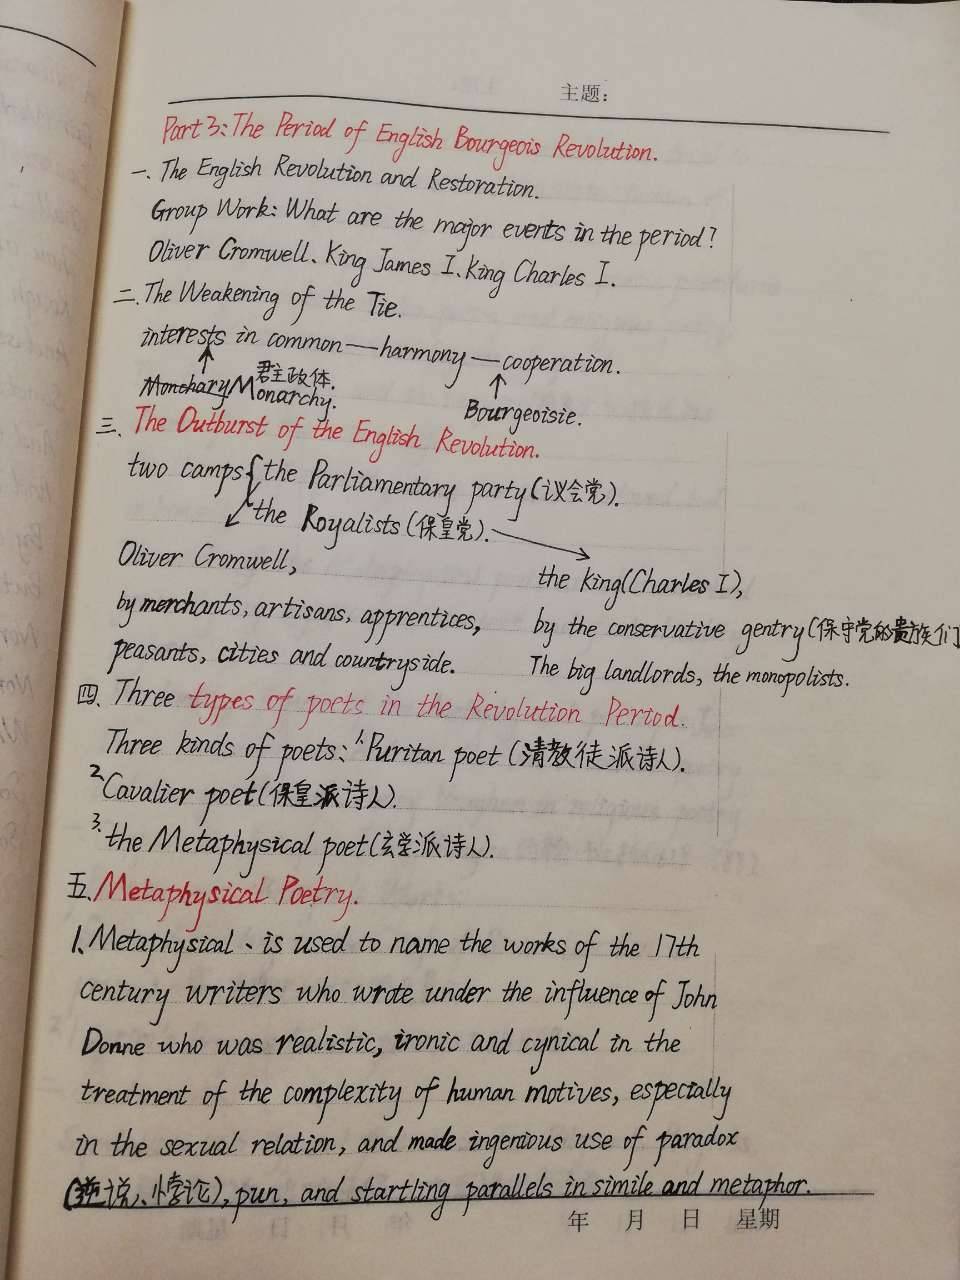 主题:
Part 3: The Period of English Bourgeois Revolution.
一. The English Revolution and Restoration.
Group Work: What are the major events in the period?
Oliver Cromwell、King James I、King Charles I.
二. The Weakening of the Tie.
interests in common—harmony—cooperation.
君主政体.
Monchary Monarchy.
Bourgeoisie.
三. The Outburst of the English Revolution.
two camps{the Parliamentary party(议会党).
the Royalists(保皇党).
Oliver Cromwell,
the king(Charles I),
by merchants, artisans, apprentices,
by the conservative gentry(保守党的贵族们
peasants, cities and countryside.
The big landlords, the monopolists.
四. Three types of poets in the Revolution Period.
Three kinds of poets: 1.Puritan poet (清教徒派诗人).
2.Cavalier poet(保皇派诗人).
3.the Metaphysical poet(玄学派诗人).
五.Metaphysical Poetry.
1.Metaphysical、is used to name the works of the 17th
century writers who wrote under the influence of John
Donne who was realistic, ironic and cynical in the
treatment of the complexity of human motives, especially
in the sexual relation, and made ingenious use of paradox
(逆说、悖论), pun, and startling parallels in simile and metaphor.
年 月 日 星期